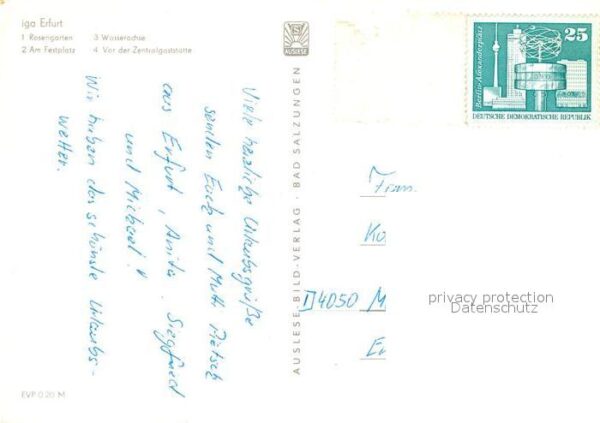 iga Erfurt
1 Rosengarten 3 Wasserachse
2 Am Festplatz 4 Vor der Zentralgaststätte
Viele herzliche Urlaubsgrüße
senden Euch und Mutti Pietsch
aus Erfurt, Anita, Siegfried
und Michael!
Wir haben das schönste Urlaubs-
wetter.
EVP 0.20 M
AUSLESE
AUSLESE-BILD-VERLAG · BAD SALZUNGEN
25
Berlin-Alexanderplatz
DEUTSCHE DEMOKRATISCHE REPUBLIK
Fram.
Ko
D4050 M.
privacy protection
Datenschutz